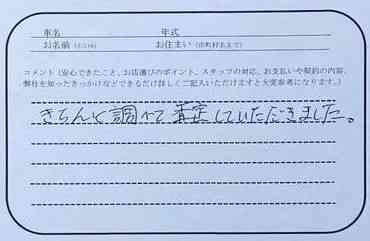 車名 年式
お名前（ｲﾆｼｬﾙ） お住まい（市町村名まで）
コメント（安心できたこと、お店選びのポイント、スタッフの対応、お支払いや契約の内容、
弊社を知ったきっかけなどできるだけ詳しくご記入いただけますと大変参考になります。）
きちんと調べて査定していただきました。